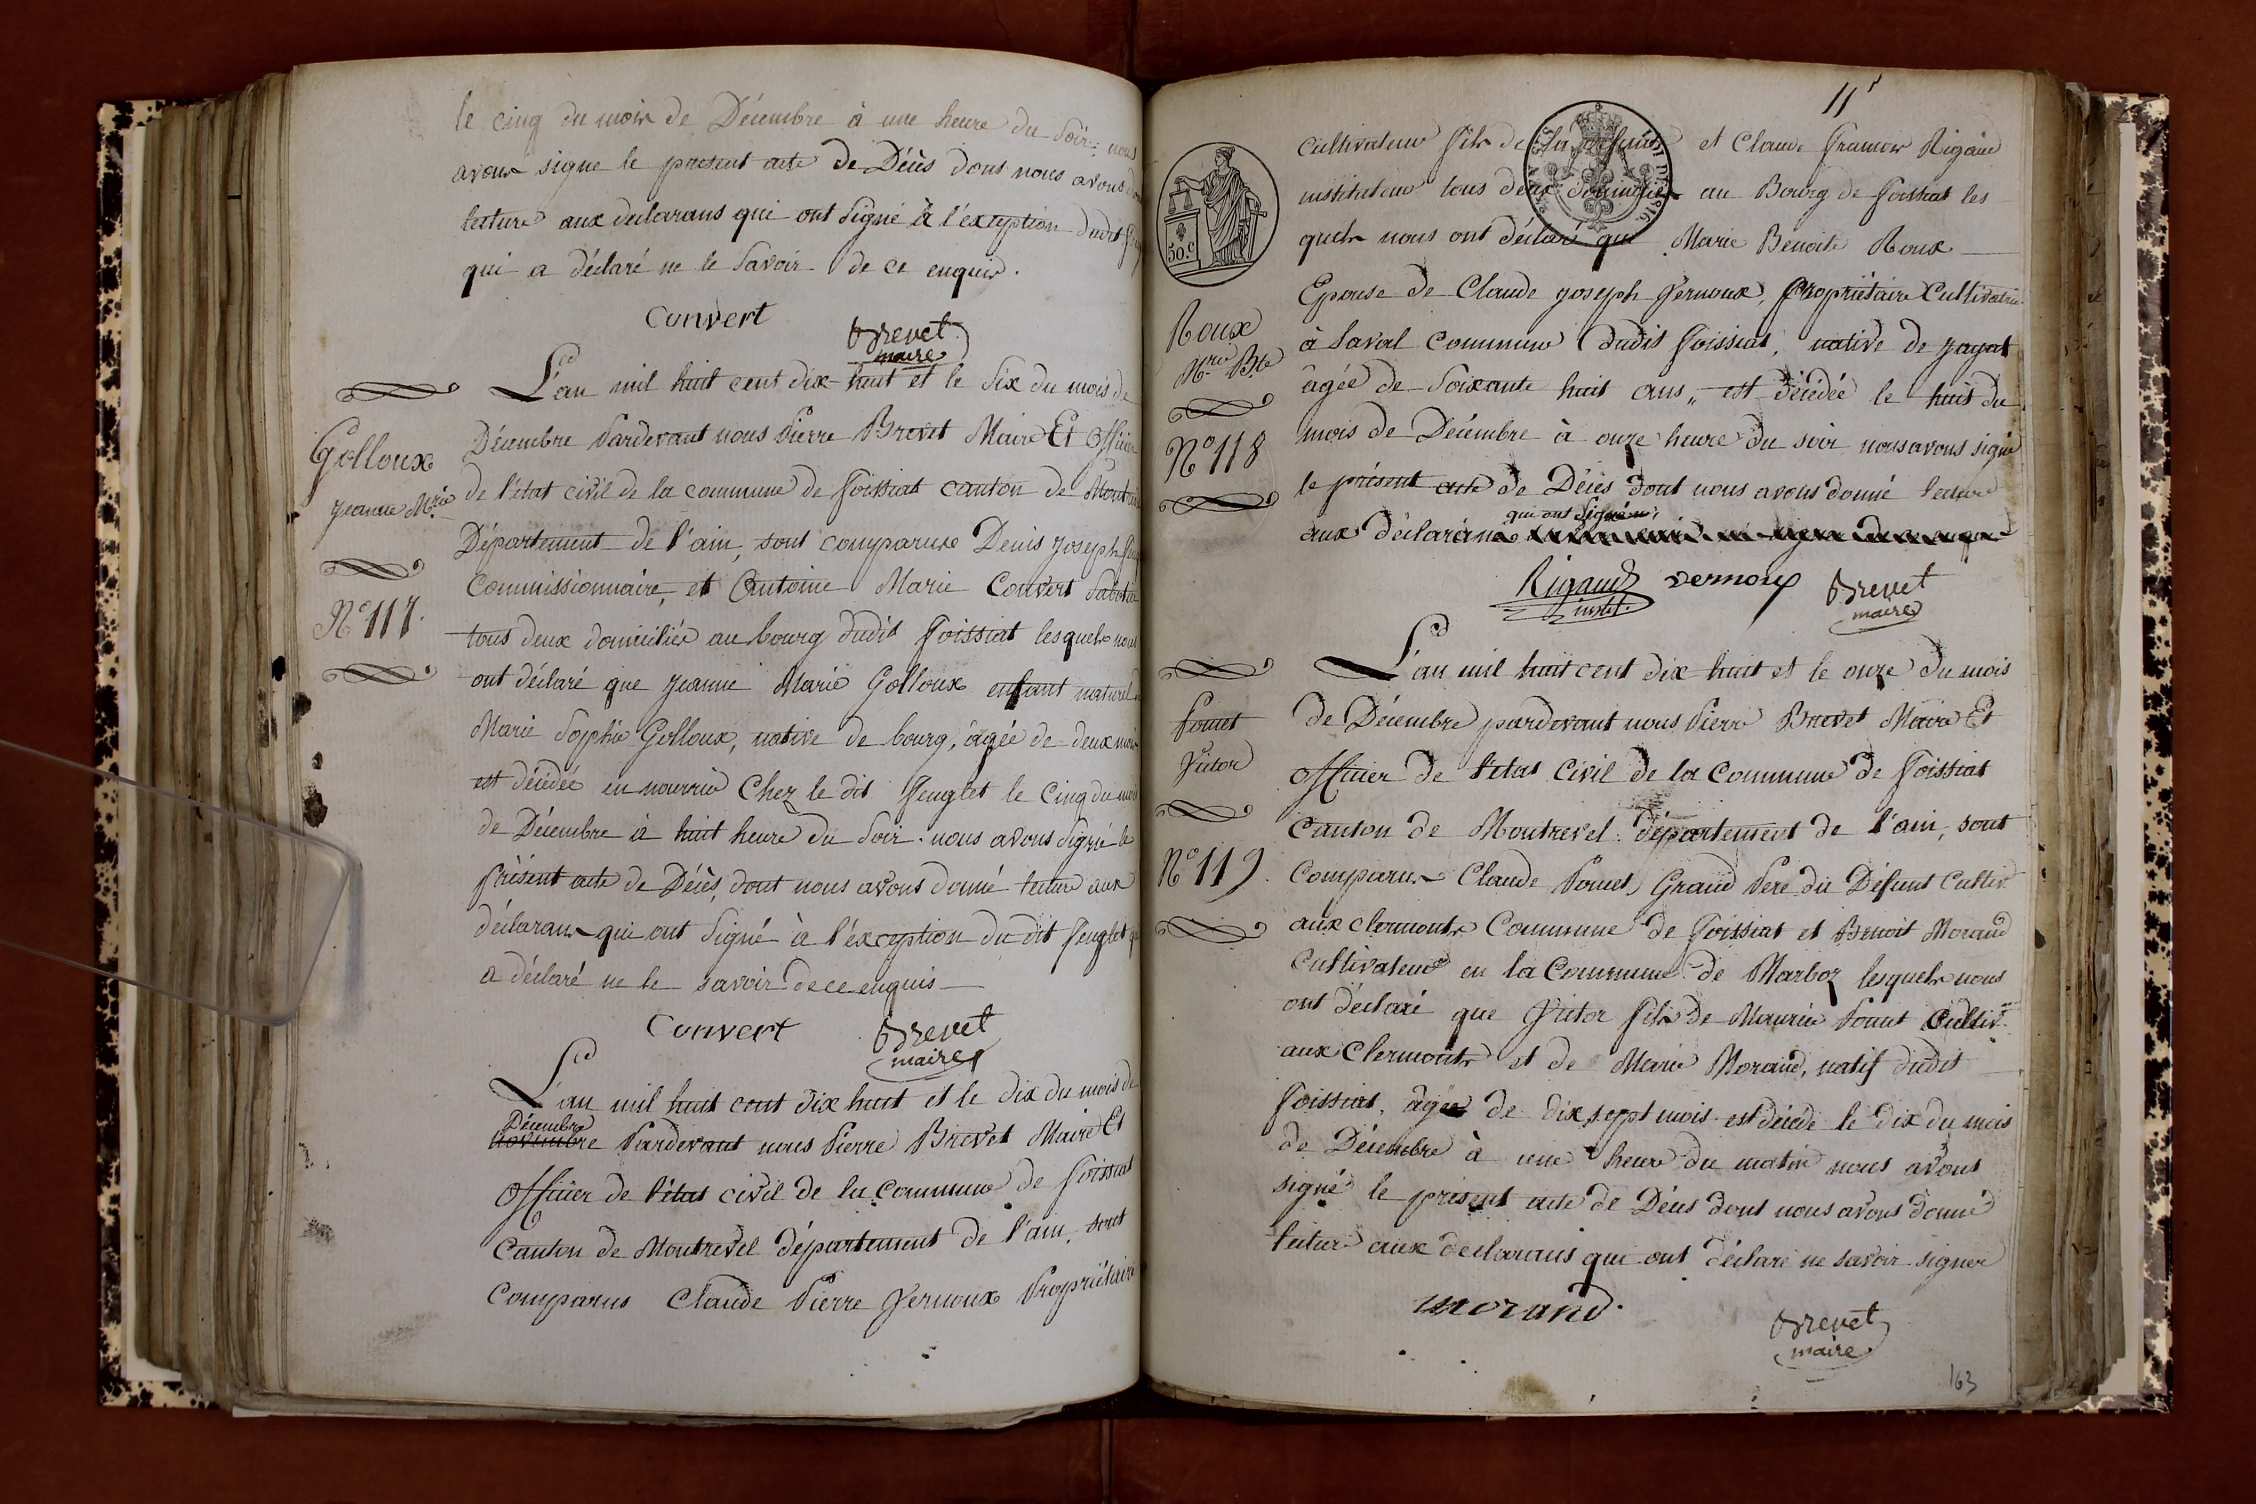 le cinq du mois de Décembre à une heure du soir; nous
avons signe le present acte de Décès dont nous avons
lecture aux déclarans qui ont signé à l'exception dudit
qui a déclaré ne le savoir de ce enquis.
Convert
Brevet
maire
L'an mil huit cent dix-huit et le six du mois de
Golloux
Jeanne Mrie
N° 117.
Décembre Pardevant nous Pierre Brevet Maire Et Officier
de l'état civil de la commune de foissiat canton de
Département de l'ain, sont comparus Denis joseph
commissionnaire, et Antoine Marie Convert
tous deux domiciliés au bourg dudit foissiat lesquels nous
ont déclaré que jeanne Marie Golloux enfant naturel
Marie Sophie Golloux, native de bourg, âgée de deux mois
est décédée en nourrice chez le dit feuglet le cinq du mois
de Décembre à huit heure du soir. nous avons signé le
présent acte de Décès, dont nous avons donné lecture aux
déclarans qui ont signé à l'éxception du dit feuglet
a déclaré ne le savoir de ce enquis
Convert
Brevet
maire
L'an mil huit cent dix huit et le dix du mois de
Décembre
novembre Pardevant nous Pierre Brevet Maire Et
officier de l'état civil de la commune de foissiat
Canton de Montrevel département de l'ain, sont
Comparus Claude Pierre Vernoux Propriétaire
cultivateur fils de la défunte et Claude francois Rigaud
instituteur tous deux domiciliés au Bourg de foissiat les
quels nous ont déclaré que Marie Benoite Roux
50.c
Epouse de Claude joseph Vernoux, Propriétaire Cultivateur
Roux
Mrie Bte
N° 118
à Laval commune dudit foissiat, native de jayat
âgée de soixante huit ans, est décédée le huit du
mois de Décembre à onze heure du soir nous avons signé
le présent acte de Décès dont nous avons donné lecture
qui ont signé
aux déclarans
Rigaud vernoux Brevet
instit. maire
L'an mil huit cent dix huit et le onze du mois
Pomet
Victor
N° 119.
de Décembre pardevant nous Pierre Brevet Maire Et
officier de l'état Civil de la Commune de foissiat
Canton de Montrevel département de l'ain, sont
Comparus Claude Pomet, Grand Pere du Défunt Cultiv.
aux clermonts Commune de foissiat et Benoit Morand
Cultivateur en la Commune de Marboz lesquels nous
ont déclaré que Victor fils de Maurice Pomet Cultiv.
aux Clermonts et de Marie Morand, natif dudit
foissiat, âgée de dix sept mois est décédé le dix du mois
de Décembre à une heure du matin nous avons
signé le présent acte de Décès dont nous avons donné
lecture aux declarans qui ont déclaré ne savoir signer
morand.
Brevet
maire
163